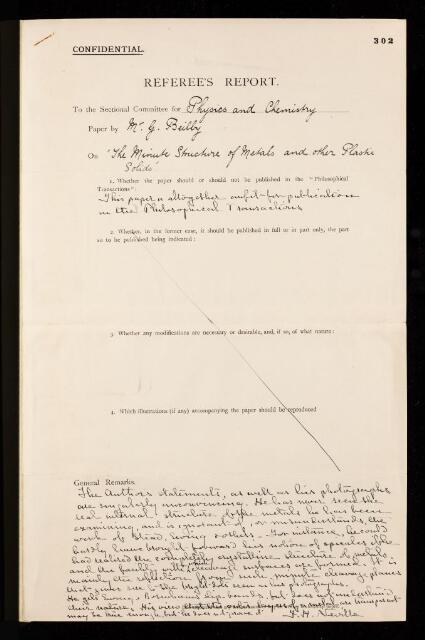 302
CONFIDENTIAL.
REFEREE'S REPORT.
To the Sectional Committee for Physics and Chemistry
Paper by Mr. G. Beilby
On "The Minute Structure of Metals and other Plastic
Solids"
1. Whether the paper should or should not be published in the "Philosophical
Transactions":
This paper is altogether unfit for publication
in the Philosophical Transactions
2. Whether, in the former case, it should be published in full or in part only, the part
so to be published being indicated:
3. Whether any modifications are necessary or desirable, and, if so, of what nature:
4. Which illustrations (if any) accompanying the paper should be reproduced
General Remarks.
The Author's statements, as well as his photographs
are singularly unconvincing. He has never seen the
real internal structure of the metals he has been
examining, and is ignorant of, or misunderstands, the
work of Stead, Ewing & others. For instance, he could
hardly have brought forward his notion of spicules if he
had realised the completely crystalline structure of metals,
and the facility with which cleavage surfaces are formed. It is
mainly the reflection from such minute cleavage planes
that gives rise to the light seen in his photographs.
He gets Ewing & Rosenhain's slip bands, but does not understand
their nature. His view that the outer layers of a metal are transparent
may be true enough, but he does not prove it
F. H. Neville